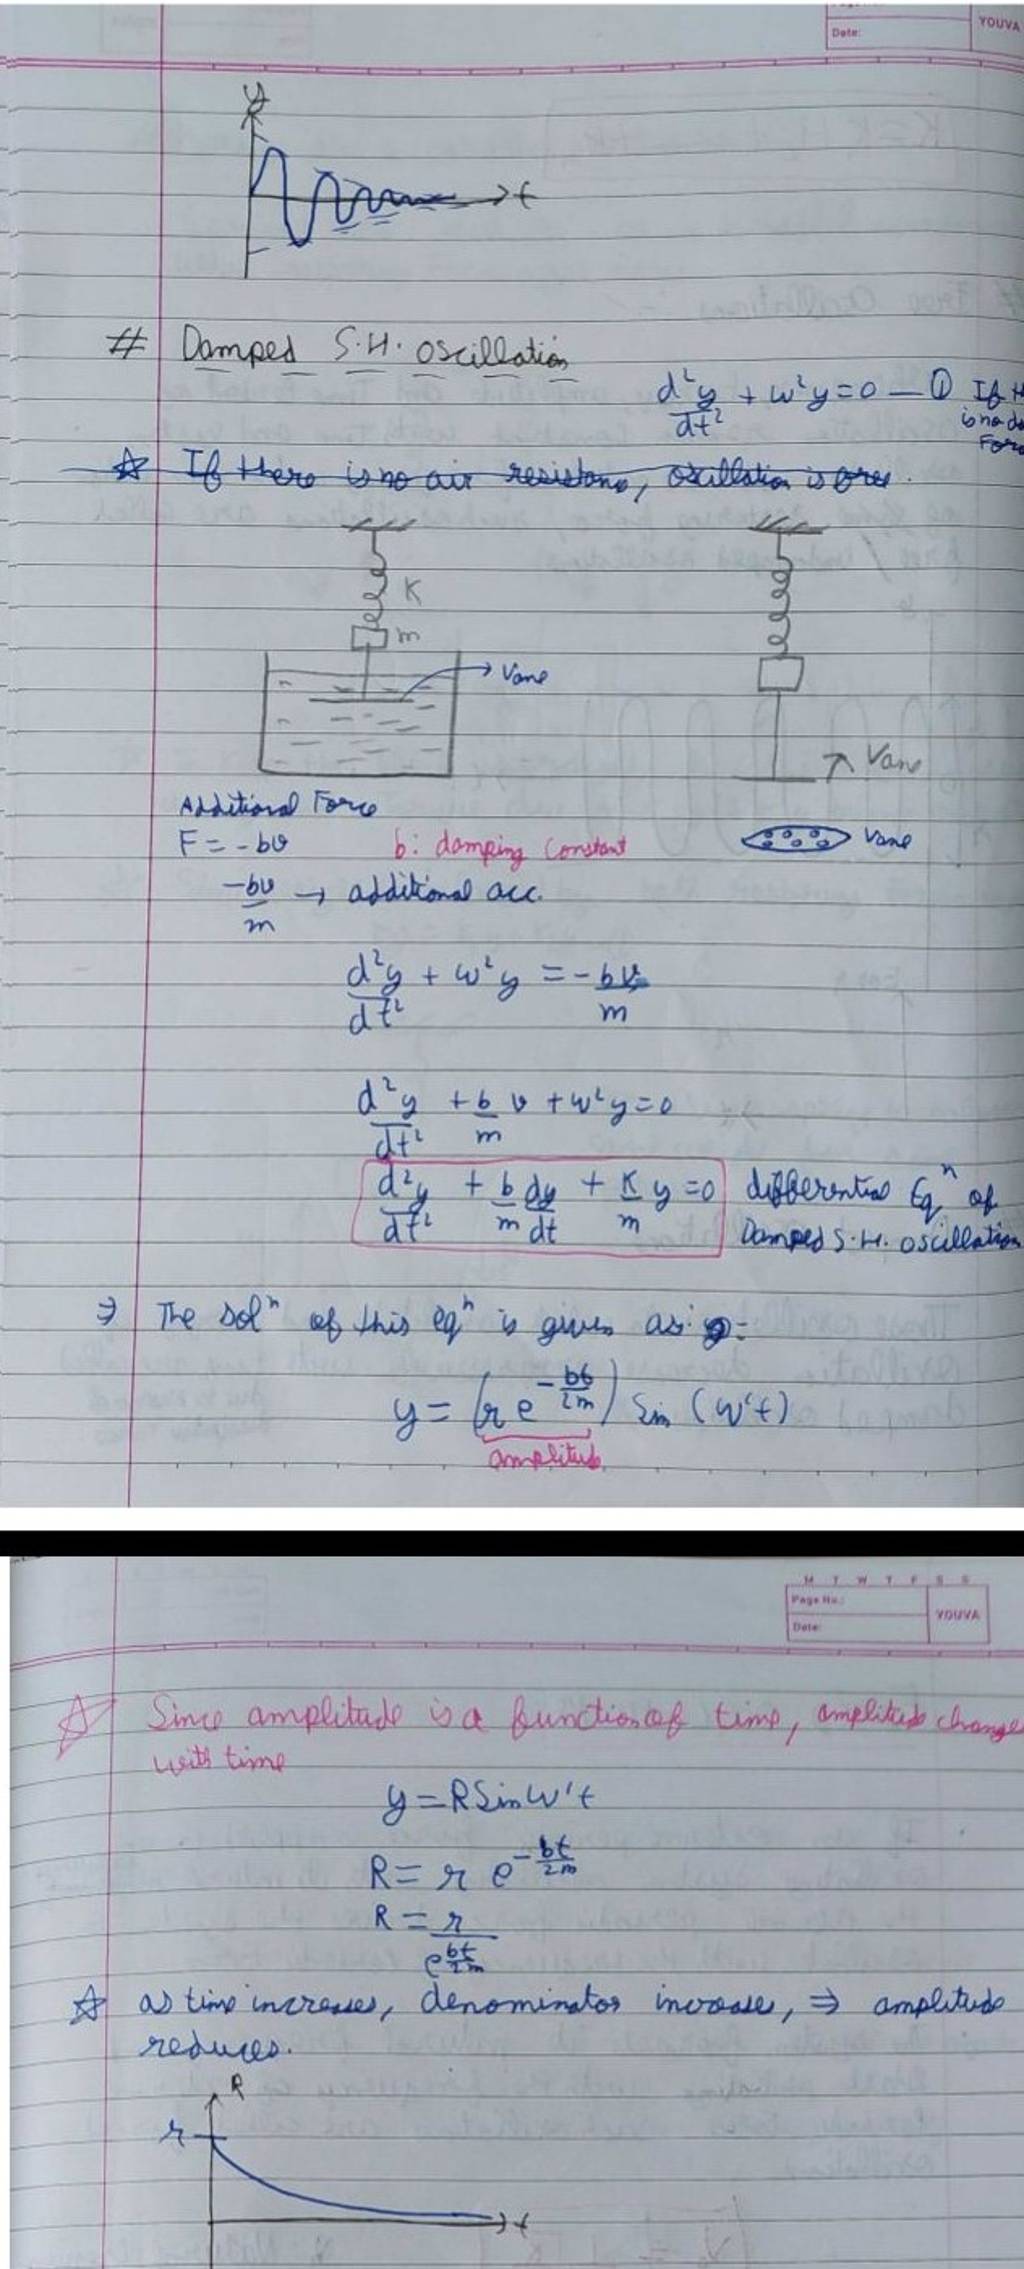 Date:
YOUVA
y
t
# Damped S.H. oscillation
d²y/dt² + w²y = 0 — ① If
is no
☆ If there is no air resistance, oscillation is free.
K
m
Vane
Vane
Additional Force
F = -bv b: damping constant
Vane
-bv/m → additional acc.
d²y/dt² + w²y = -bv/m
d²y/dt² + b/m v + w²y = 0
d²y/dt² + b/m dy/dt + K/m y = 0 differential Eqⁿ of
Damped S.H. oscillation
⇒ The solⁿ of this eqⁿ is given as :
y = (r e^(-bt/2m)) Sin (w't)
amplitude
M T W T F S S
Page No.:
Date:
YOUVA
☆ Since amplitude is a function of time, amplitude change
with time
y = R Sin w't
R = r e^(-bt/2m)
R = r/e^(bt/2m)
☆ as time increases, denominator increase, ⇒ amplitude
reduces.
R
r
t